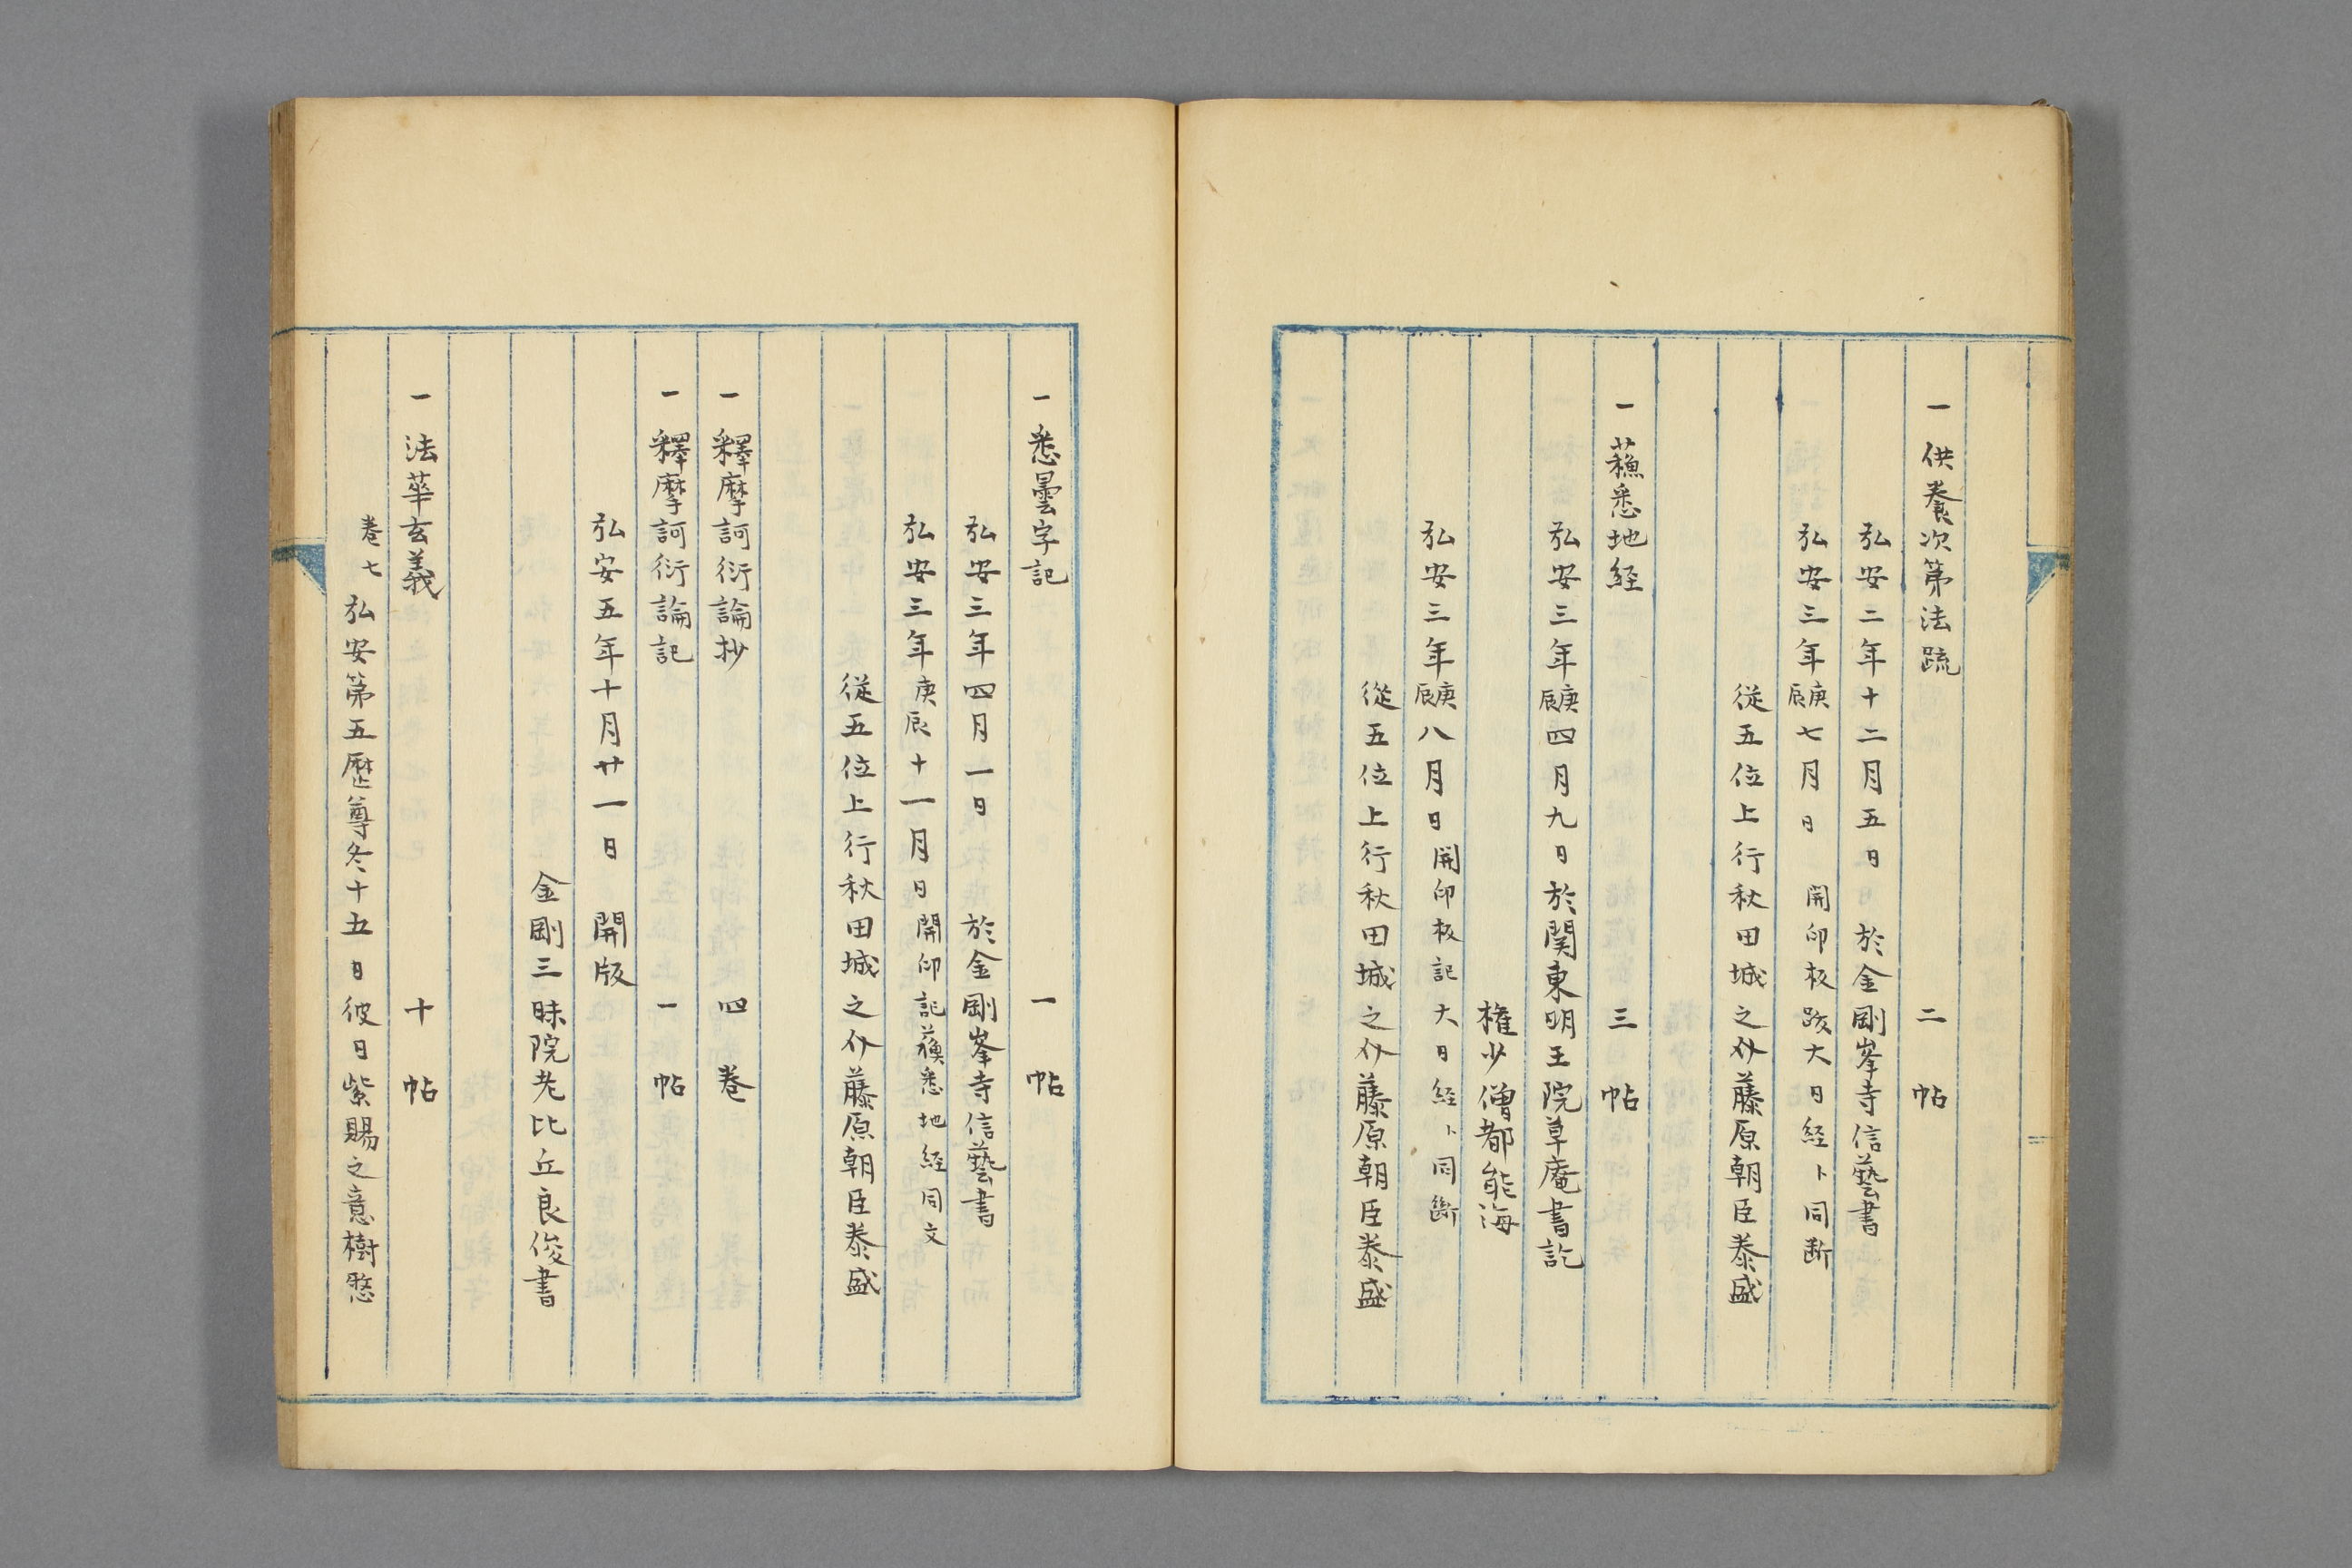 一 供養次第法疏 二帖
弘安二年十二月五日 於金剛峯寺信藝書
弘安三年庚辰七月日 開印板跋大日経ト同断
従五位上行秋田城之介藤原朝臣泰盛
一 蘓悉地経 三帖
弘安三年庚辰四月九日於関東明王院草庵書訖
権少僧都能海
弘安三年庚辰八月日 開印板記大日経ト同断
従五位上行秋田城之介藤原朝臣泰盛
一 悉曇字記 一帖
弘安三年四月一日 於金剛峯寺信藝書
弘安三年庚辰十一月日 開印記蘓悉地経同文
従五位上行秋田城之介藤原朝臣泰盛
一 釋摩訶衍論抄 四巻
一 釋摩訶衍論記 一帖
弘安五年十月廿一日 開版
金剛三昧院老比丘良俊書
一 法華玄義 十帖
巻七 弘安第五歴尊冬十五日彼日紫賜之意樹愍